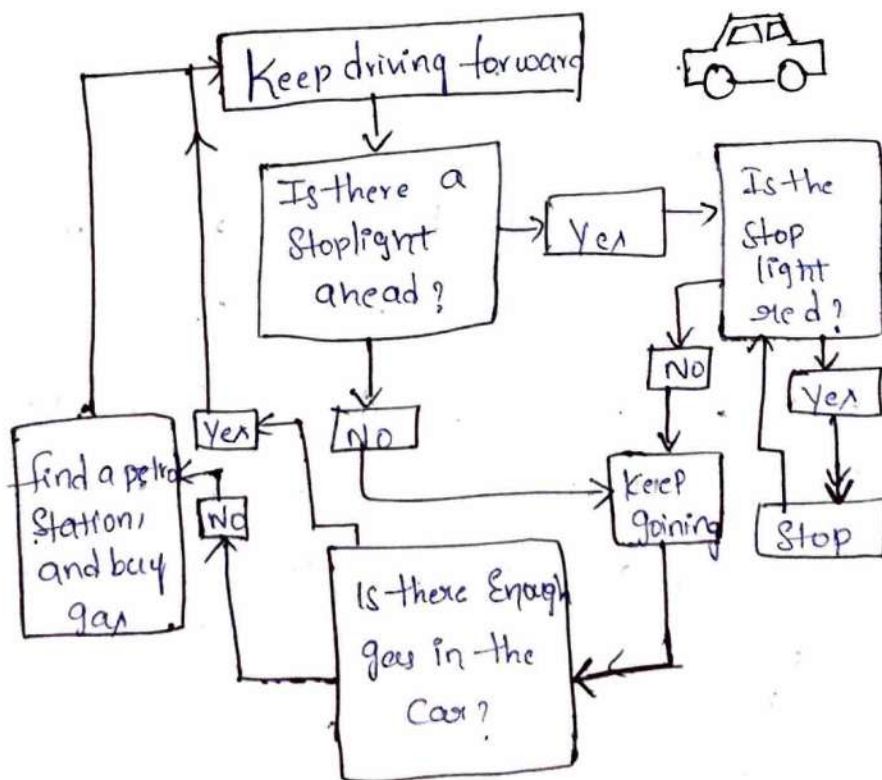 Keep driving forward
Is there a
Stoplight
ahead?
Yes
Is the
Stop
light
red?
No
Yes
Stop
No
Keep
goining
Is there Enough
gas in the
Car?
Yes
No
find a petro
Station,
and buy
gas